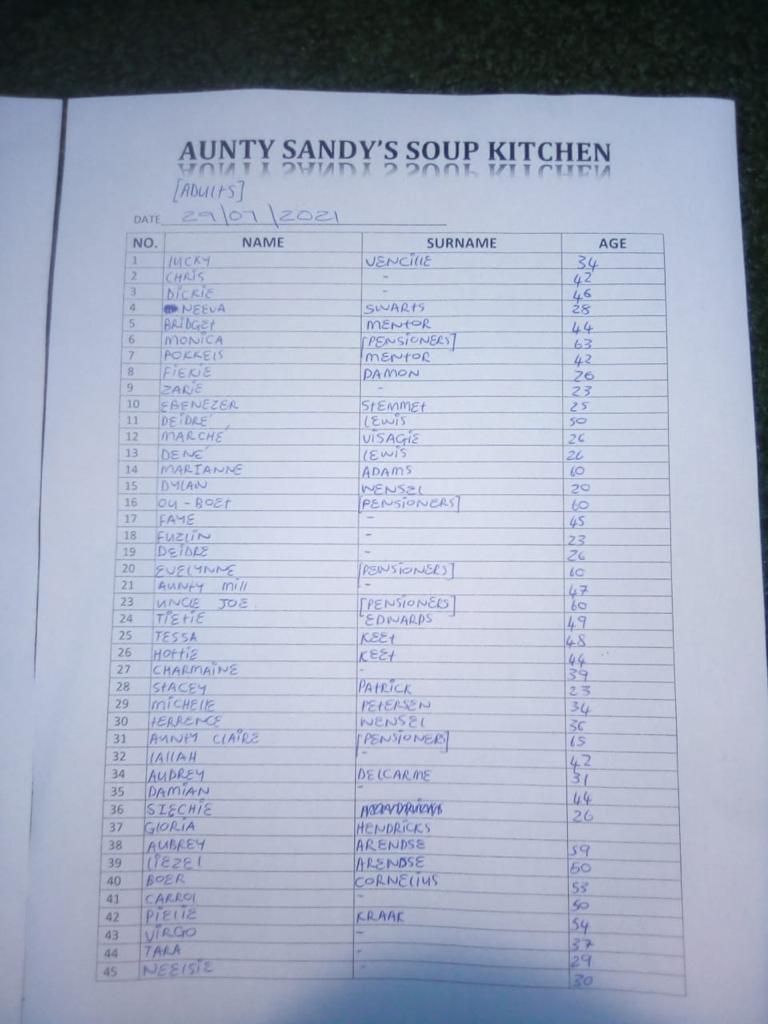 AUNTY SANDY'S SOUP KITCHEN
[ADULTS]
DATE 29/07/2021
NO. NAME SURNAME AGE
1 LUCKY VENCILLE 34
2 CHRIS - 42
3 DICKIE - 46
4 NEEVA SWARTS 28
5 BRIDGET MENTOR 44
6 MONICA [PENSIONERS] 63
7 POKKELS MENTOR 42
8 FIEKIE DAMON 26
9 ZARIE - 23
10 EBENEZER STEMMET 25
11 DEIDRÉ LEWIS 50
12 MARCHÉ VISAGIE 26
13 DENÉ LEWIS 26
14 MARIANNE ADAMS 60
15 DYLAN WENSEL 20
16 OU-BOET [PENSIONERS] 60
17 FAYE - 45
18 FUZLIN - 23
19 DEIDRE - 26
20 EVELYNNE [PENSIONERS] 60
21 AUNTY MILL - 47
23 UNCLE JOE [PENSIONERS] 60
24 TIETIE EDWARDS 49
25 TESSA KEET 48
26 HOTTIE KEET 44
27 CHARMAINE - 39
28 STACEY PATRICK 23
29 MICHELLE PETERSEN 34
30 TERRENCE WENSEL 36
31 AUNTY CLAIRE [PENSIONERS] 65
32 LALLAH - 42
34 AUDREY DELCARME 31
35 DAMIAN - 44
36 SIECHIE 26
37 GLORIA HENDRICKS
38 AUBREY ARENDSE 59
39 LIEZEL ARENDSE 50
40 BOER CORNELIUS 53
41 CARROL - 50
42 PIELIE KRAAK 54
43 VIRGO - 37
44 TARA - 29
45 NEELSIE - 30